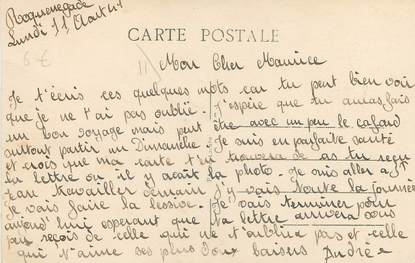 Roquenegade
Lundi 11 Aout 41
6 €
CARTE POSTALE
Mon Cher Maurice
Je t'écris ces quelques mots car tu peut bien voir
que je ne t'ai pas oublié. J'espère que tu auras fais
un bon voyage mais peut être avec un peu le cafard
surtout partir un Dimanche. Je suis en parfaite santé
crois que ma carte trouvera as tu reçu
la lettre ou il y avait la photo. Je suis aller a
travailler demain j'y vais toute la journée
Je vais faire la lessive. Je vais terminer pour
aujourd'hui esperant que ma lettre arrivera vous
reçois de celle qui ne t'oublira pas et celle
qui t'aime ses plus doux baisers Andrée